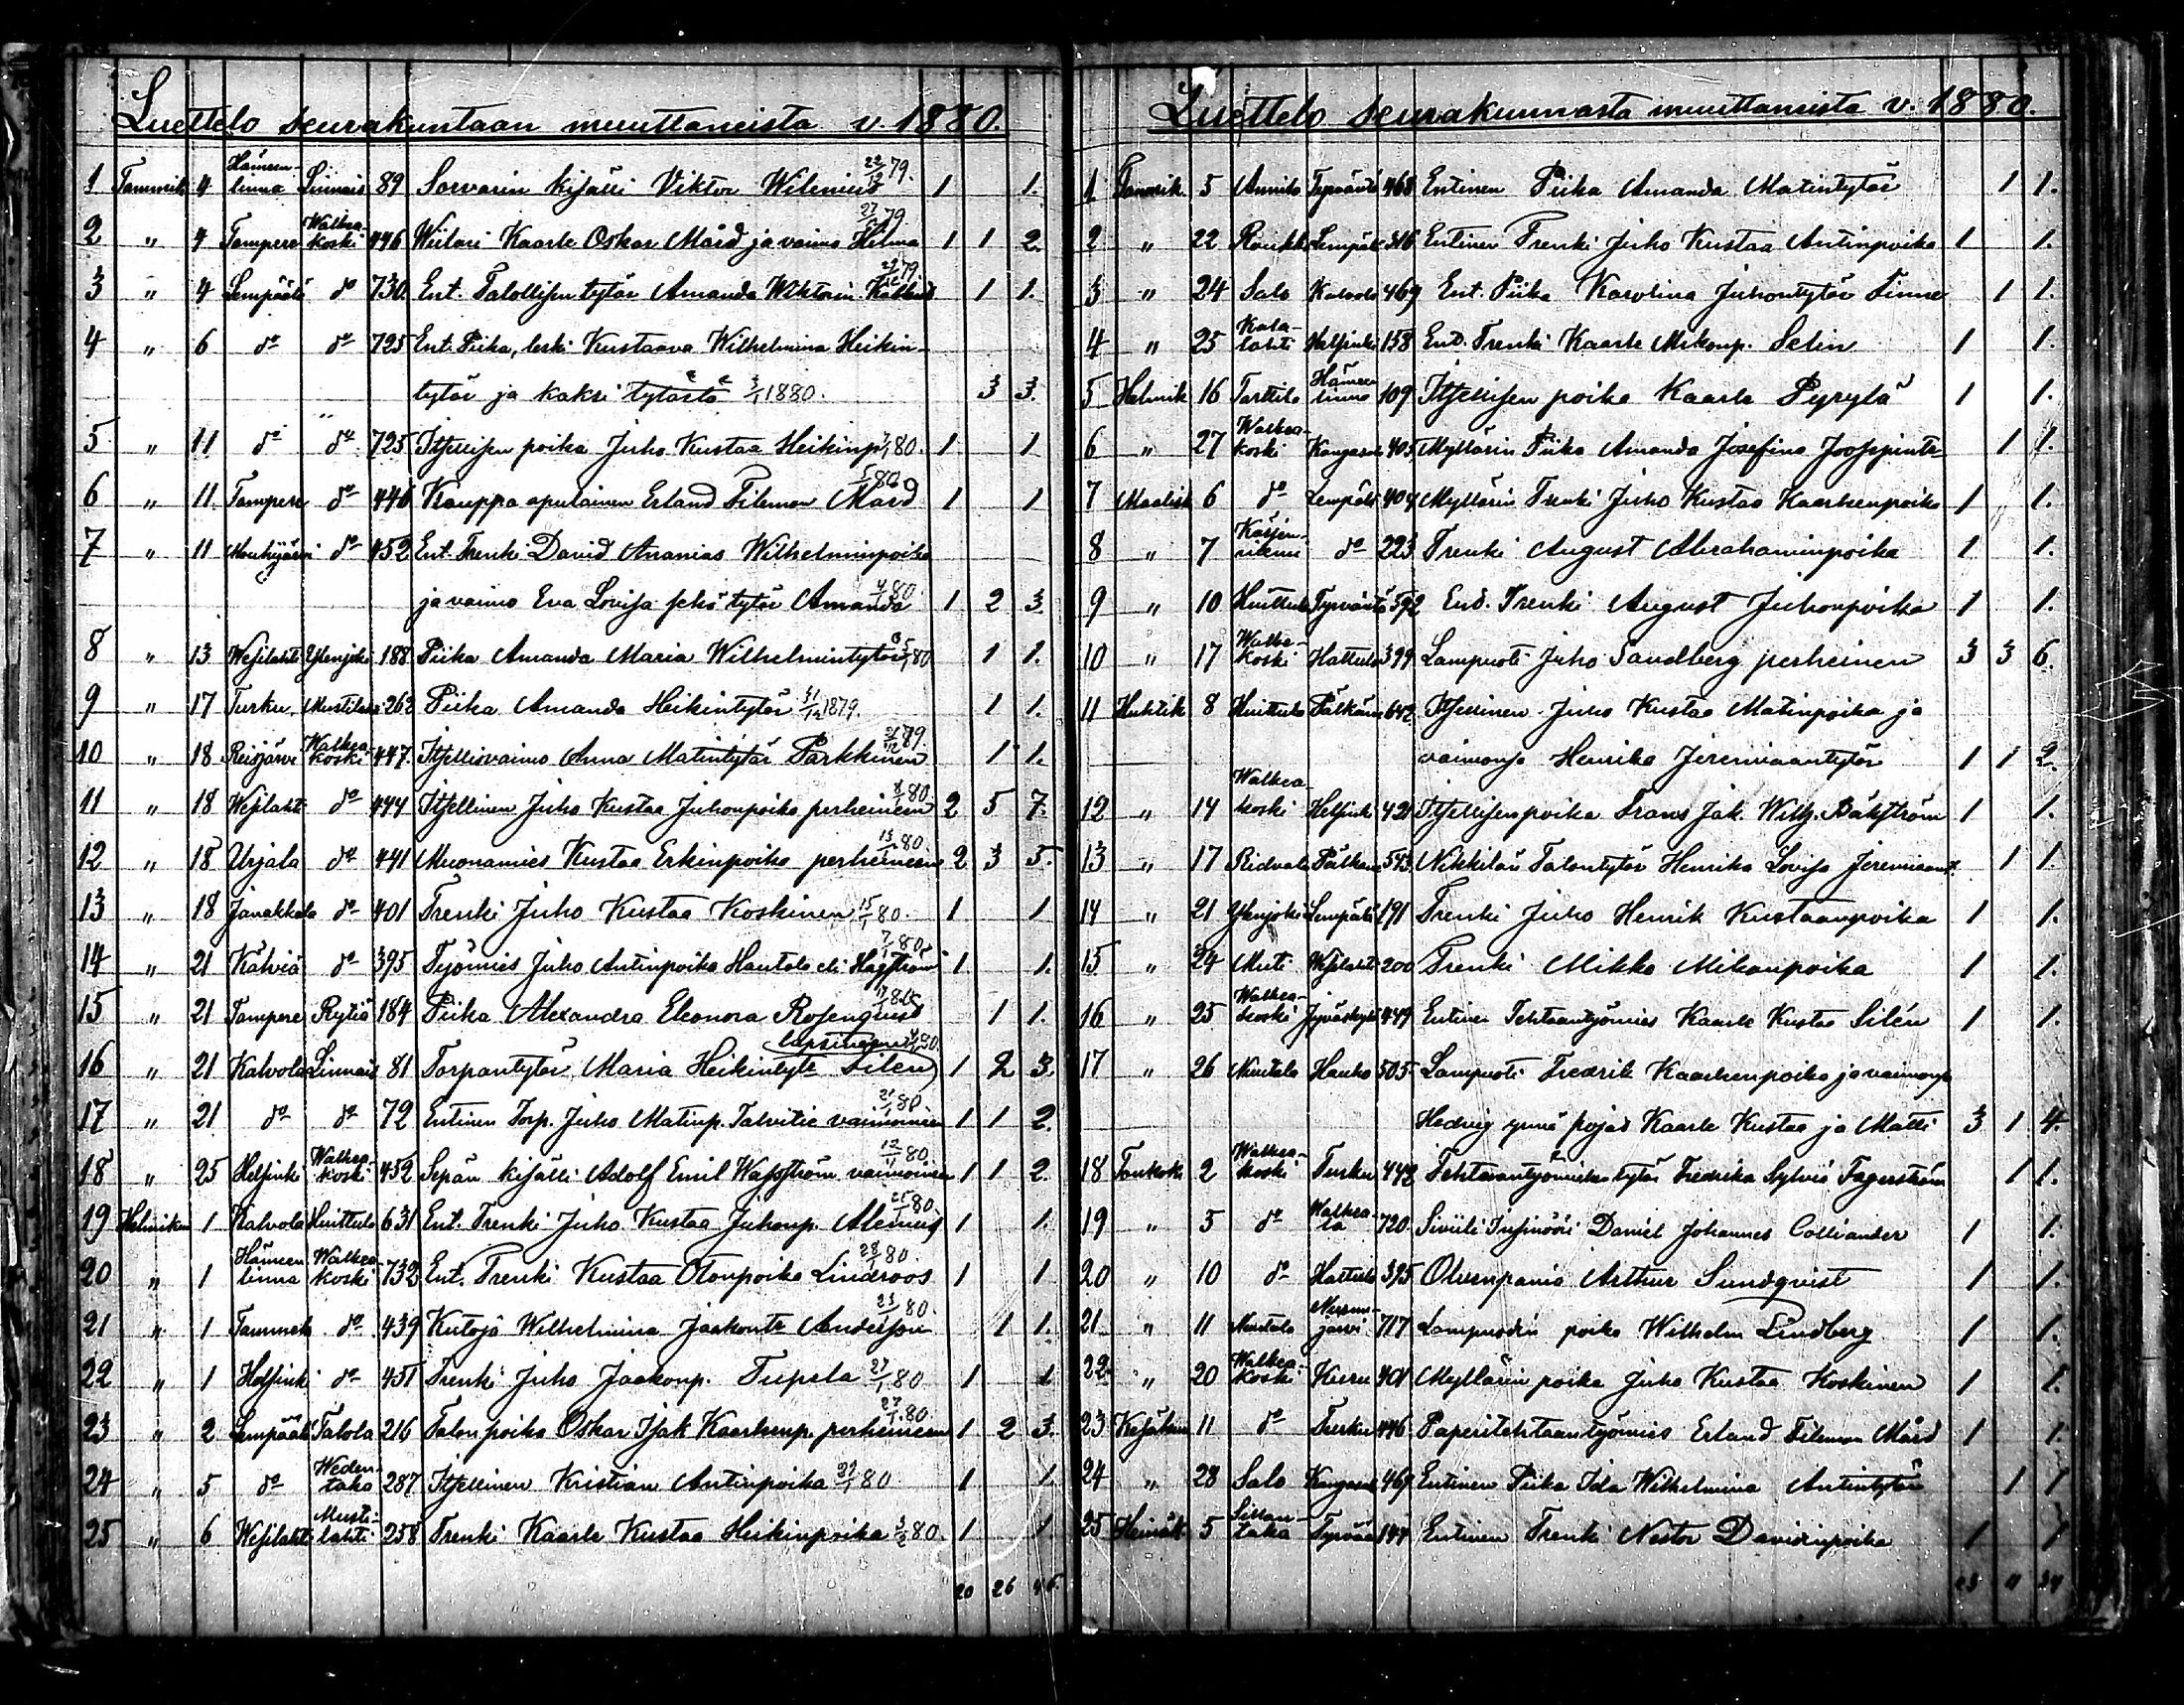 Luettelo seurakuntaan muuttaneista v. 1880.
1 Tammik 4 Hämeen-linna Linnais 89 Sorvarin kisälli Viktor Wilenius 22/12 79. 1 1.
2 " 4 Tampere Walkea-koski 446 Wiilari Kaarle Oskar Mård ja vaimo Hilma 27/12 79 1 1 2.
3 " 4 Lempäälä do 730 Ent. Talollisen tytär Amanda Wiktorin 29/12 79 1 1.
4 " 6 do do 725 Ent. Piika, leski Kustaava Wilhelmina Heikin-
tytär ja kaksi tytärtä 3/1 1880. 3 3.
5 " 11 do do 725 Itsellisen poika Juho Kustaa Heikinp. 80. 1 1
6 " 11 Tampere do 446 Kauppa apulainen Erland Filemon Mård 5/1 80 1 1
7 " 11 Mouhijärvi do 452 Ent. Trenki David Ananias Wilhelminpoika
ja vaimo Eva Lovisa sekä tytär Amanda 4/1 80 1 2 3.
8 " 13 Wesilahti Ylenjoki 188 Piika Amanda Maria Wilhelmintytär 80 1 1.
9 " 17 Turku Mustilahti 262 Piika Amanda Heikintytär 31/12 1879. 1 1.
10 " 18 Reisjärvi Walkea-koski 447 Itsellisvaimo Anna Matintytär Parkkinen 1 1.
11 " 18 Wesilaht do 444 Itsellinen Juho Kustaa Juhonpoika perheineen 8/1 80. 2 5 7.
12 " 18 Urjala do 441 Muonamies Kustaa Erkinpoika perheineen 13/1 80. 2 3 5.
13 " 18 Janakkala do 401 Trenki Juho Kustaa Koskinen 15/1 80. 1 1
14 " 21 Kälviä do 395 Työmies Juho Antinpoika Hautala eli Hagström 7/1 80 1 1.
15 " 21 Tampere Rytiö 184 Piika Alexandra Eleonora Rosenqvist 1 1.
16 " 21 Kalvola Linnais 81 Torpantytär Maria Heikintytr Silen lapsineen 1 2 3.
17 " 21 do do 72 Entinen Torp. Juho Matinp. Talvitie vaimoineen 80 1 1 2.
18 " 25 Helsinki Walkea-koski 452 Sepän kisälli Adolf Emil Wasström vaimoineen 12/1 80 1 1 2.
19 Helmikuu 1 Kalvola Huittula 631 Ent. Trenki Juho Kustaa Juhonp. Alenius 80 1 1.
20 " 1 Hämeen linna Walkea-koski 732 Ent. Trenki Kustaa Otonpoika Lindroos 28/1 80. 1 1
21 " 1 Tammela do 439 Kutoja Wilhelmina Jaakontr Andersson 23/1 80. 1 1.
22 " 1 Helsinki do 451 Trenki Juho Jaakonp. Tupala 27/1 80 1 1
23 " 2 Lempäälä Tarola 216 Talon poika Oskar Isak Kaarlenp. perheineen 27/1 80 1 2 3.
24 " 5 do Weden-taka 287 Itsellinen Kristian Antinpoika 80 1 1.
25 " 6 Wesilahti Musti-lahti 258 Trenki Kaarle Kustaa Heikinpoika 3/2 80. 1 1
20 26 46.
Luettelo seurakunnasta muuttaneista v. 1880.
1 Tammik 5 Annila Tyrväntö 468 Entinen Piika Amanda Matintytär 1 1.
2 " 22 Roukko Lempäälä 316 Entinen Trenki Juho Kustaa Antinpoika 1 1.
3 " 24 Salo Kalvola 469 Ent. Piika Karolina Juhontytär Finne 1 1.
4 " 25 Kata-lahti Helsinki 158 Ent. Trenki Kaarle Mikonp. Selin 1 1.
5 Helmik 16 Tarttila Hämeen linna 109 Itsellisen poika Kaarle Pyrylä 1 1.
6 " 27 Walkea-koski Kangasa 405 Myllärin Piika Amanda Josefina Joosepintr 1 1.
7 Maalisk 6 do Lempäälä 404 Myllärin Trenki Juho Kustaa Kaarlenpoika 1 1.
8 " 7 do 223 Trenki August Abrahaminpoika 1 1.
9 " 10 Huittula Tyrväntö 592 Ent. Trenki August Juhonpoika 1 1.
10 " 17 Walkea-koski Hattula 399 Lampuoti Juho Sandberg perheinen 3 3 6.
11 Huhtik 8 Huittula Pälkäne 642 Itsellinen Juho Kustaa Matinpoika ja
vaimonsa Henrika Jeremiaantytär 1 1 2.
12 " 14 Walkea-koski Helsinki 421 Itsellisenpoika Frans Jak. Wilh. Bäkström 1 1.
13 " 17 Ridvala Pälkäne 543 Nikkilän Talontytär Henrika Lovisa Jeremiaant. 1 1.
14 " 21 Ylenjoki Lempäälä 191 Trenki Juho Henrik Kustaanpoika 1 1.
15 " 24 Muti Wesilahti 200 Trenki Mikko Mikonpoika 1 1.
16 " 25 Walkea-koski Jyväskylä 449 Entinen Tehtaantyömies Kaarle Kustaa Silén 1 1.
17 " 26 Uutala Hauho 505 Lampuoti Fredrik Kaarlenpoika ja vaimonsa
Hedvig ynnä pojat Kaarle Kustaa ja Matti 3 1 4.
18 Toukok 2 Walkea-koski Turku 442 Tehtaantyömiehen tytär Fredrika Sylvia Fagerström 1 1.
19 " 5 do Walkea-la 720 Siviili Insinööri Daniel Johannes Colliander 1 1.
20 " 10 do Hattula 395 Oluenpania Arthur Sundqvist 1 1.
21 " 11 Uutala Nurmi-järvi 717 Lampuodin poika Wilhelm Lindberg 1 1.
22 " 20 Walkea-koski Kuru 401 Myllärin poika Juho Kustaa Koskinen 1 1.
23 Kesäkuu 11 do Turku 446 Paperitehtaantyömies Erland Filemon Mård 1 1
24 " 28 Salo Kangasa 469 Entinen Piika Ida Wilhelmina Antintytär 1 1
25 Heinäk 5 Sillan-taka Entinen Trenki Nestor Davidinpoika 1 1